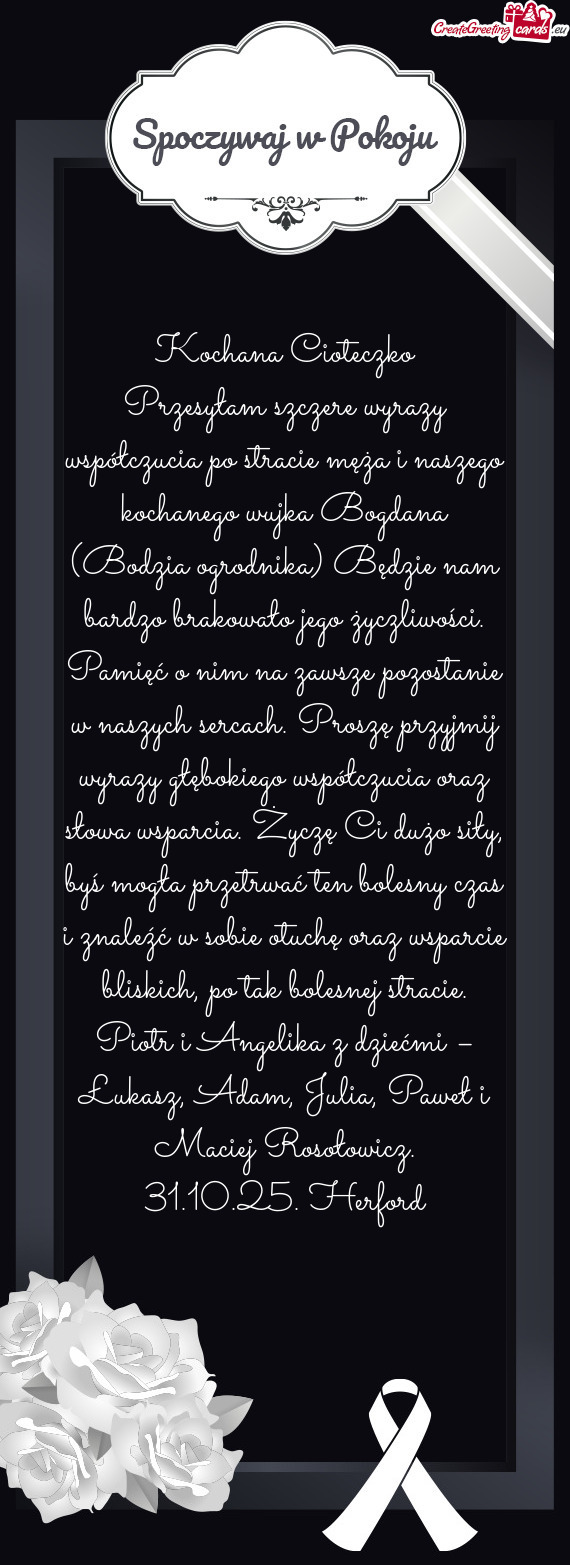 CreateGreetingcards.eu
Spoczywaj w Pokoju
Kochana Cioteczko
Przesyłam szczere wyrazy
współczucia po stracie męża i naszego
kochanego wujka Bogdana
(Bodzia ogrodnika) Będzie nam
bardzo brakowało jego życzliwości.
Pamięć o nim na zawsze pozostanie
w naszych sercach. Proszę przyjmij
wyrazy głębokiego współczucia oraz
słowa wsparcia. Życzę Ci dużo siły,
byś mogła przetrwać ten bolesny czas
i znaleźć w sobie otuchę oraz wsparcie
bliskich, po tak bolesnej stracie.
Piotr i Angelika z dziećmi –
Łukasz, Adam, Julia, Paweł i
Maciej Rosołowicz.
31.10.25. Herford